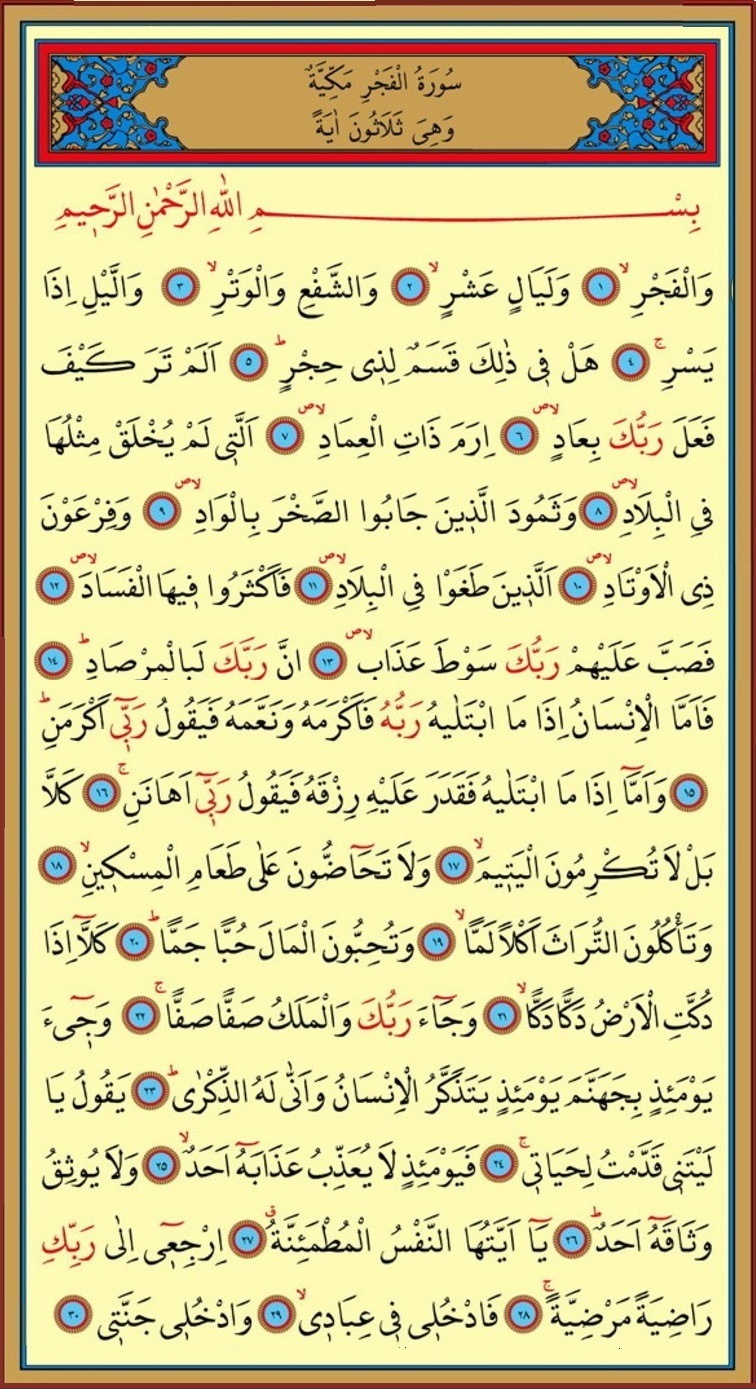 سُورَةُ الْفَجْرِ مَكِّيَّةٌ
وَهِيَ ثَلَاثُونَ اٰيَةً
بِسْمِ اللّٰهِ الرَّحْمٰنِ الرَّحِيمِ
وَالْفَجْرِۙ ﴿١﴾ وَلَيَالٍ عَشْرٍۙ ﴿٢﴾ وَالشَّفْعِ وَالْوَتْرِۙ ﴿٣﴾ وَالَّيْلِ اِذَا
يَسْرِۚ ﴿٤﴾ هَلْ فٖي ذٰلِكَ قَسَمٌ لِذٖي حِجْرٍؕ ﴿٥﴾ اَلَمْ تَرَ كَيْفَ
فَعَلَ رَبُّكَ بِعَادٍۙۖ ﴿٦﴾ اِرَمَ ذَاتِ الْعِمَادِۙۖ ﴿٧﴾ اَلَّتٖي لَمْ يُخْلَقْ مِثْلُهَا
فِي الْبِلَادِۙۖ ﴿٨﴾ وَثَمُودَ الَّذٖينَ جَابُوا الصَّخْرَ بِالْوَادِۙۖ ﴿٩﴾ وَفِرْعَوْنَ
ذِي الْاَوْتَادِۙۖ ﴿١٠﴾ اَلَّذٖينَ طَغَوْا فِي الْبِلَادِۙۖ ﴿١١﴾ فَاَكْثَرُوا فٖيهَا الْفَسَادَۙۖ ﴿١٢﴾
فَصَبَّ عَلَيْهِمْ رَبُّكَ سَوْطَ عَذَابٍۙۖ ﴿١٣﴾ انَّ رَبَّكَ لَبِالْمِرْصَادِؕ ﴿١٤﴾
فَاَمَّا الْاِنْسَانُ اِذَا مَا ابْتَلٰيهُ رَبُّهُ فَاَكْرَمَهُ وَنَعَّمَهُ فَيَقُولُ رَبّٖٓي اَكْرَمَنِؕ
﴿١٥﴾ وَاَمَّٓا اِذَا مَا ابْتَلٰيهُ فَقَدَرَ عَلَيْهِ رِزْقَهُ فَيَقُولُ رَبّٖٓي اَهَانَنِۚ ﴿١٦﴾ كَلَّا
بَلْ لَا تُكْرِمُونَ الْيَتٖيمَۙ ﴿١٧﴾ وَلَا تَحَٓاضُّونَ عَلٰى طَعَامِ الْمِسْكٖينِۙ ﴿١٨﴾
وَتَأْكُلُونَ التُّرَاثَ اَكْلًا لَمًّاۙ ﴿١٩﴾ وَتُحِبُّونَ الْمَالَ حُبًّا جَمًّاؕ ﴿٢٠﴾ كَلَّٓا اِذَا
دُكَّتِ الْاَرْضُ دَكًّا دَكًّاۙ ﴿٢١﴾ وَجَٓاءَ رَبُّكَ وَالْمَلَكُ صَفًّا صَفًّاۚ ﴿٢٢﴾ وَجٖٓيءَ
يَوْمَئِذٍ بِجَهَنَّمَ يَوْمَئِذٍ يَتَذَكَّرُ الْاِنْسَانُ وَاَنّٰى لَهُ الذِّكْرٰىؕ ﴿٢٣﴾ يَقُولُ يَا
لَيْتَنٖي قَدَّمْتُ لِحَيَاتٖيۚ ﴿٢٤﴾ فَيَوْمَئِذٍ لَا يُعَذِّبُ عَذَابَهُٓ اَحَدٌۙ ﴿٢٥﴾ وَلَا يُوثِقُ
وَثَاقَهُٓ اَحَدٌؕ ﴿٢٦﴾ يَٓا اَيَّتُهَا النَّفْسُ الْمُطْمَئِنَّةُۗ ﴿٢٧﴾ اِرْجِعٖٓي اِلٰى رَبِّكِ
رَاضِيَةً مَرْضِيَّةًۚ ﴿٢٨﴾ فَادْخُلٖي فٖي عِبَادٖيۙ ﴿٢٩﴾ وَادْخُلٖي جَنَّتٖي ﴿٣٠﴾